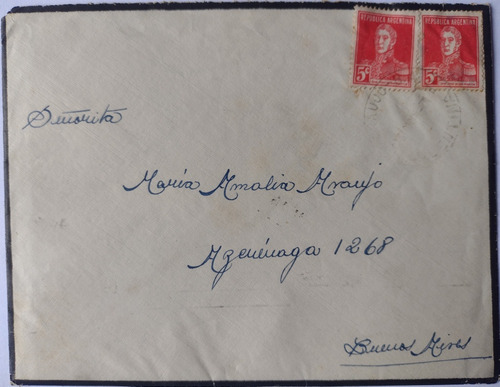 REPUBLICA ARGENTINA REPUBLICA ARGENTINA
5c 5c
Señorita
María Amalia Araujo
Azcuénaga 1268
Buenos Aires